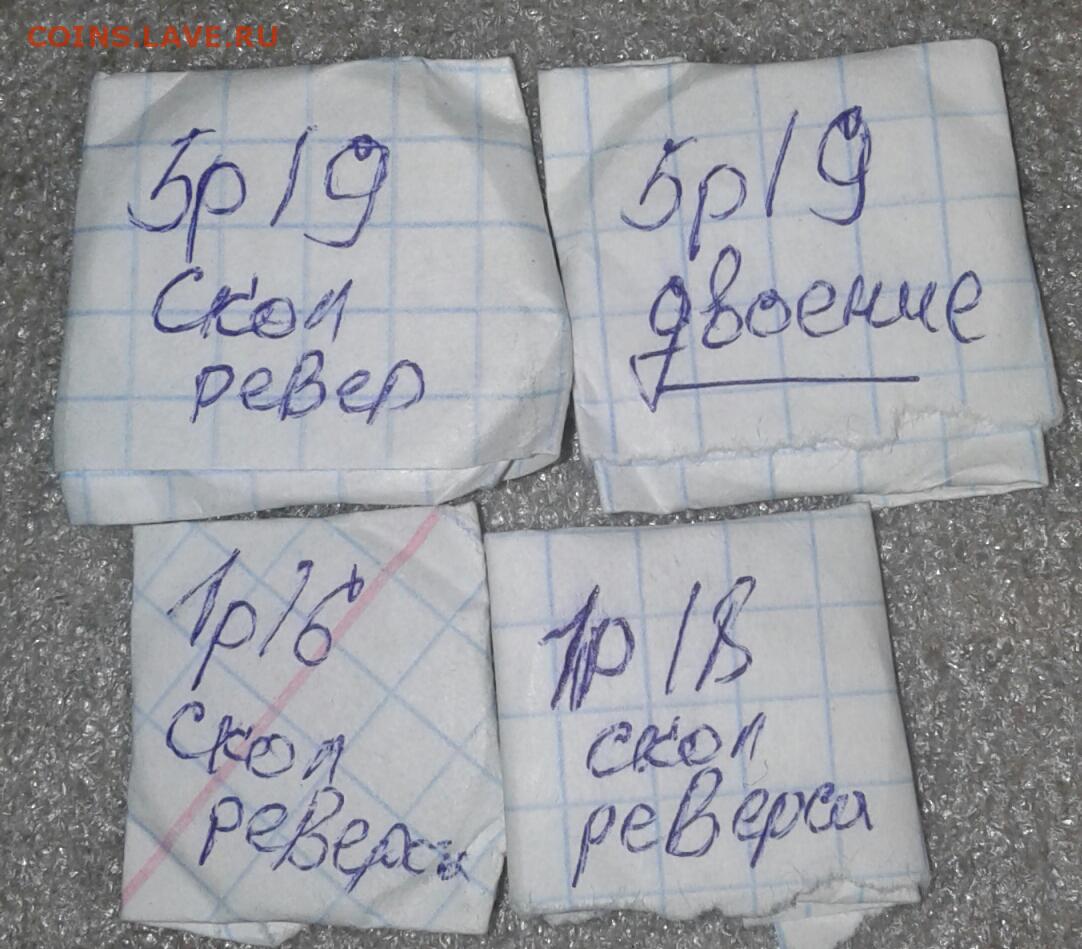 COINS.LAVE.RU
5р19
Скол
ревер
5р19
двоение
1р16
скол
реверса
1р18
скол
реверса